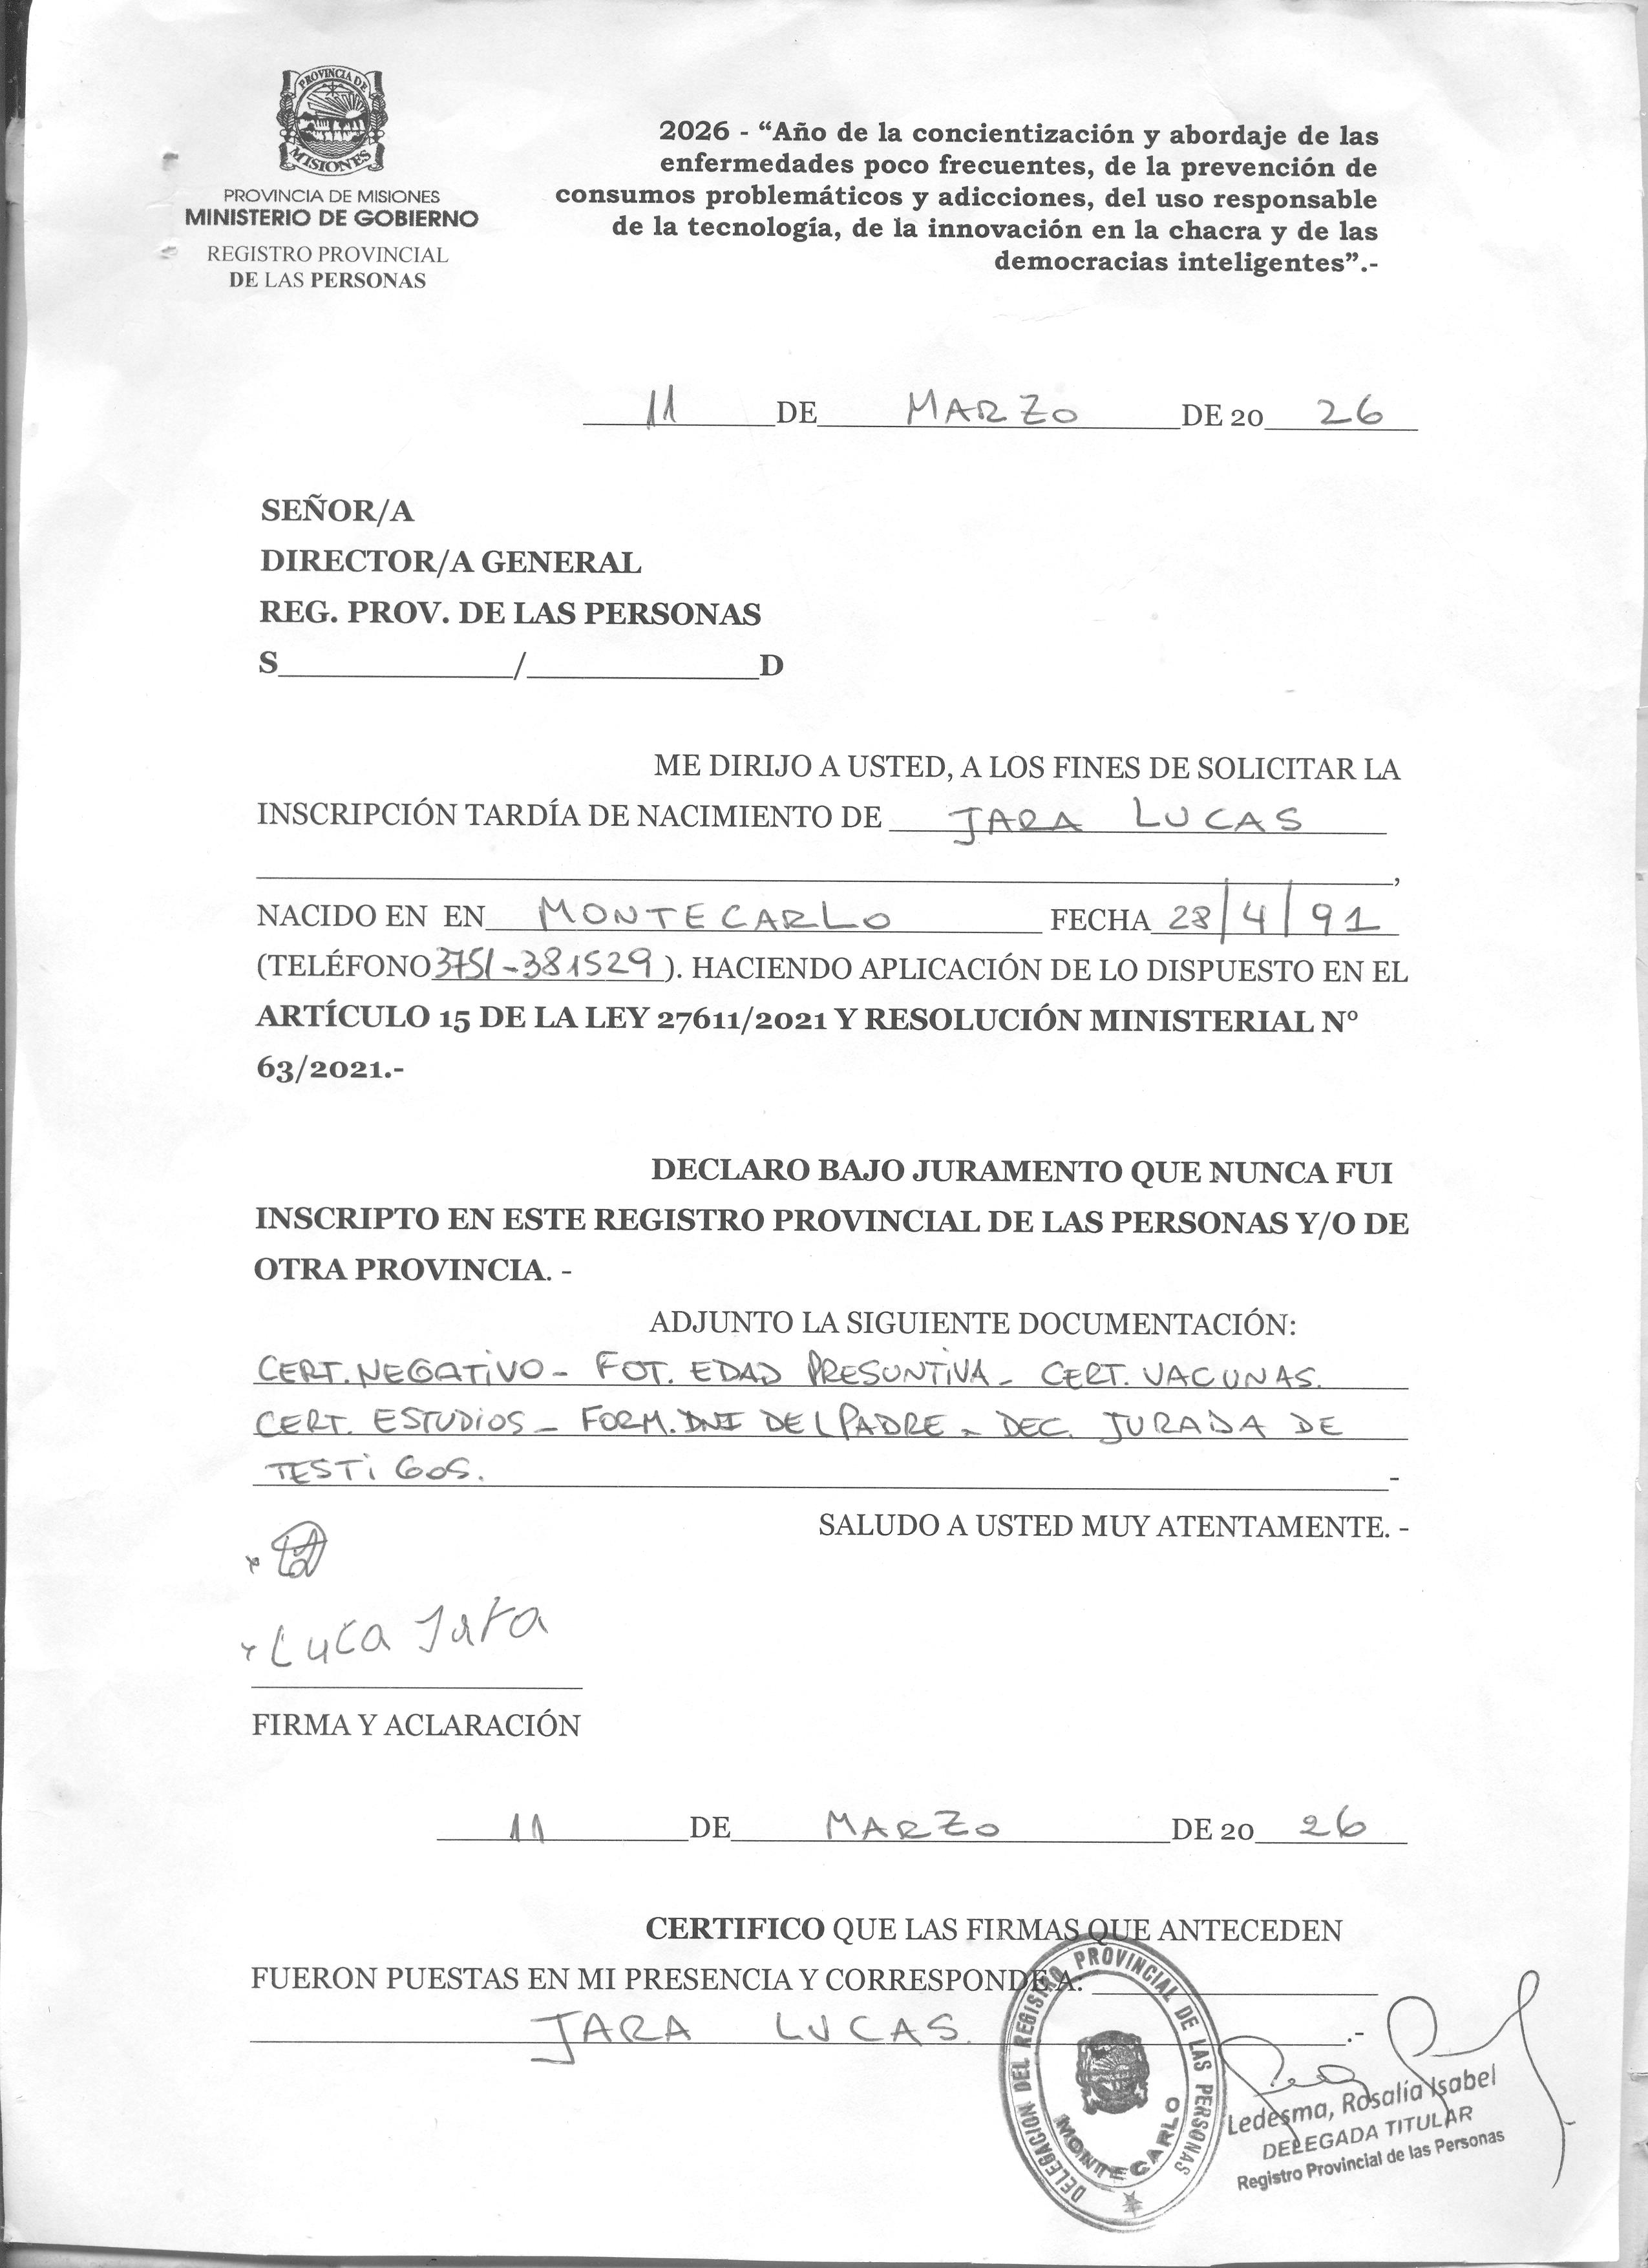 PROVINCIA DE
MISIONES
PROVINCIA DE MISIONES
MINISTERIO DE GOBIERNO
REGISTRO PROVINCIAL
DE LAS PERSONAS
2026 - “Año de la concientización y abordaje de las
enfermedades poco frecuentes, de la prevención de
consumos problemáticos y adicciones, del uso responsable
de la tecnología, de la innovación en la chacra y de las
democracias inteligentes”.-
11 DE MARZO DE 20 26
SEÑOR/A
DIRECTOR/A GENERAL
REG. PROV. DE LAS PERSONAS
S______________/______________D
ME DIRIJO A USTED, A LOS FINES DE SOLICITAR LA
INSCRIPCIÓN TARDÍA DE NACIMIENTO DE JARA LUCAS
,
NACIDO EN EN MONTECARLO FECHA 28/4/91
(TELÉFONO 3751-381529). HACIENDO APLICACIÓN DE LO DISPUESTO EN EL
ARTÍCULO 15 DE LA LEY 27611/2021 Y RESOLUCIÓN MINISTERIAL N°
63/2021.-
DECLARO BAJO JURAMENTO QUE NUNCA FUI
INSCRIPTO EN ESTE REGISTRO PROVINCIAL DE LAS PERSONAS Y/O DE
OTRA PROVINCIA. -
ADJUNTO LA SIGUIENTE DOCUMENTACIÓN:
CERT. NEGATIVO - FOT. EDAD PRESUNTIVA - CERT. VACUNAS.
CERT. ESTUDIOS - FORM. DNI DEL PADRE - DEC. JURADA DE
TESTIGOS. -
SALUDO A USTED MUY ATENTAMENTE. -
x
x Luca Jara
FIRMA Y ACLARACIÓN
11 DE MARZO DE 20 26
CERTIFICO QUE LAS FIRMAS QUE ANTECEDEN
FUERON PUESTAS EN MI PRESENCIA Y CORRESPONDE A:
JARA LUCAS. .-
DELEGACION DEL REGISTRO PROVINCIAL DE LAS PERSONAS
MONTECARLO
Ledesma, Rosalía Isabel
DELEGADA TITULAR
Registro Provincial de las Personas